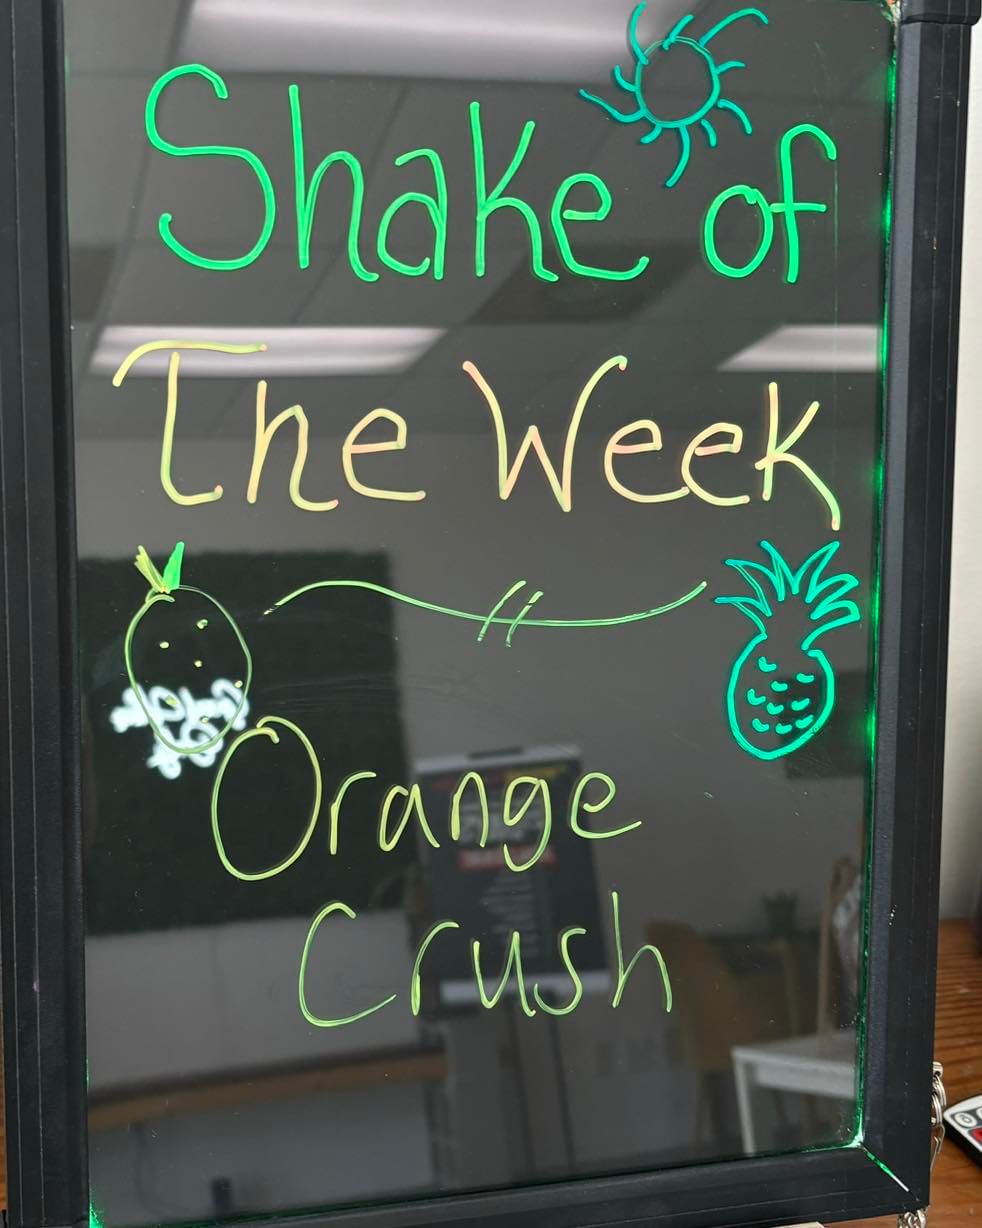 Shake of
The Week
Orange
Crush